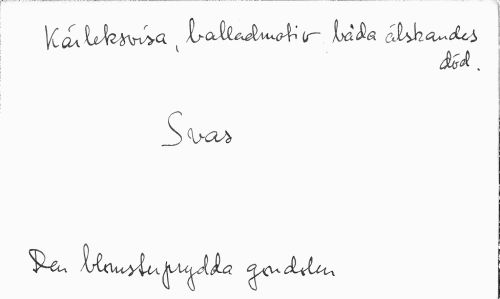 Kärleksvisa, balladmotiv båda älskandes
död.
Svas
Den blomsterprydda gondolen